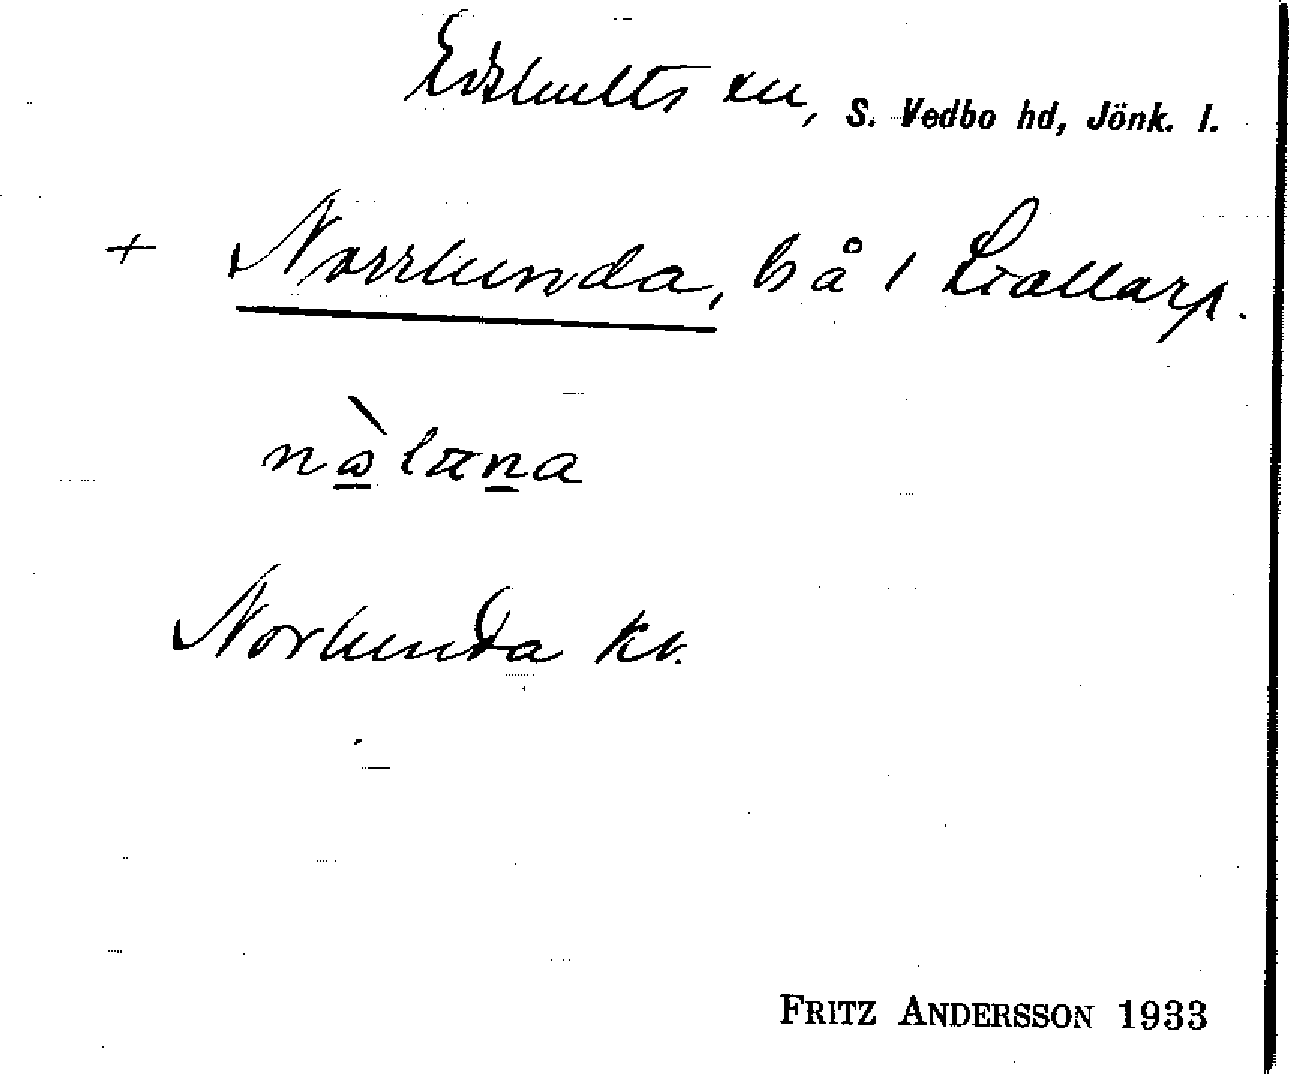 Edshults sn, S. Vedbo hd, Jönk. l.
+ Norrlunda, bå i Liallarp.
nàlana
Norlunda kv.
FRITZ ANDERSSON 1933